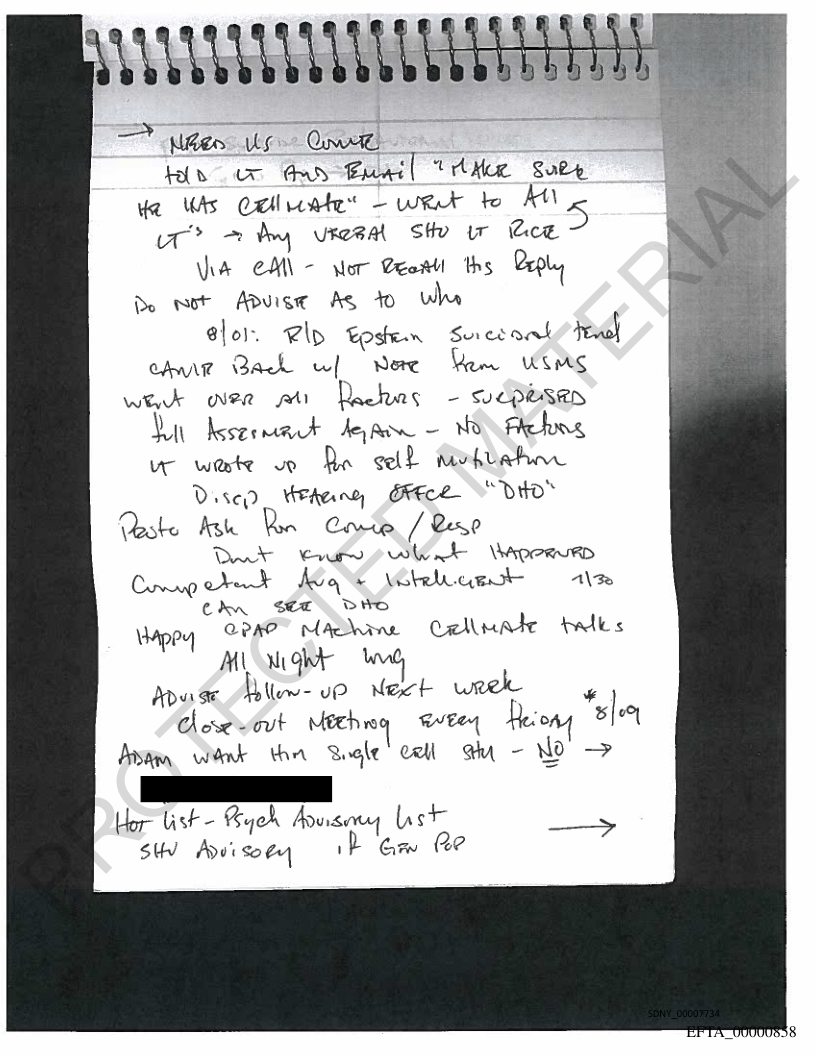 → NEED US COURT
told LT AND EMAIL "MAKE SURE
HE HAS CELLMATE" - WENT to All
LT's → Any VERBAL SHU LT RICE
VIA CALL - NOT RECALL His Reply
Do NOT ADVISE AS to Who
8/01: R/O Epstein Suicidal tend
CAME BACK w/ NOTE from USMS
WENT OVER All FACTORS - SURPRISED
full ASSESSMENT AGAIN - NO FACTORS
LT WROTE UP for self MUTILATION
Discip HEARING OFFCR "DHO"
Ask for Comp / Resp
Don't KNOW WHAT HAPPENED
Competent Avg + INTELLIGENT 7/30
CAN SEE DHO
HAPPY CPAP MACHINE CELLMATE TALKS
All Night long
ADVISE follow-up NEXT WEEK
Close-out MEETING EVERY FRIDAY *8/09
ADAM WANT HIM Single CELL SHU - NO →
Hot list - Psych Advisory list →
SHU ADVISORY if GEN POP
PROTECTED MATERIAL
SDNY_00007734
EFTA_00000858